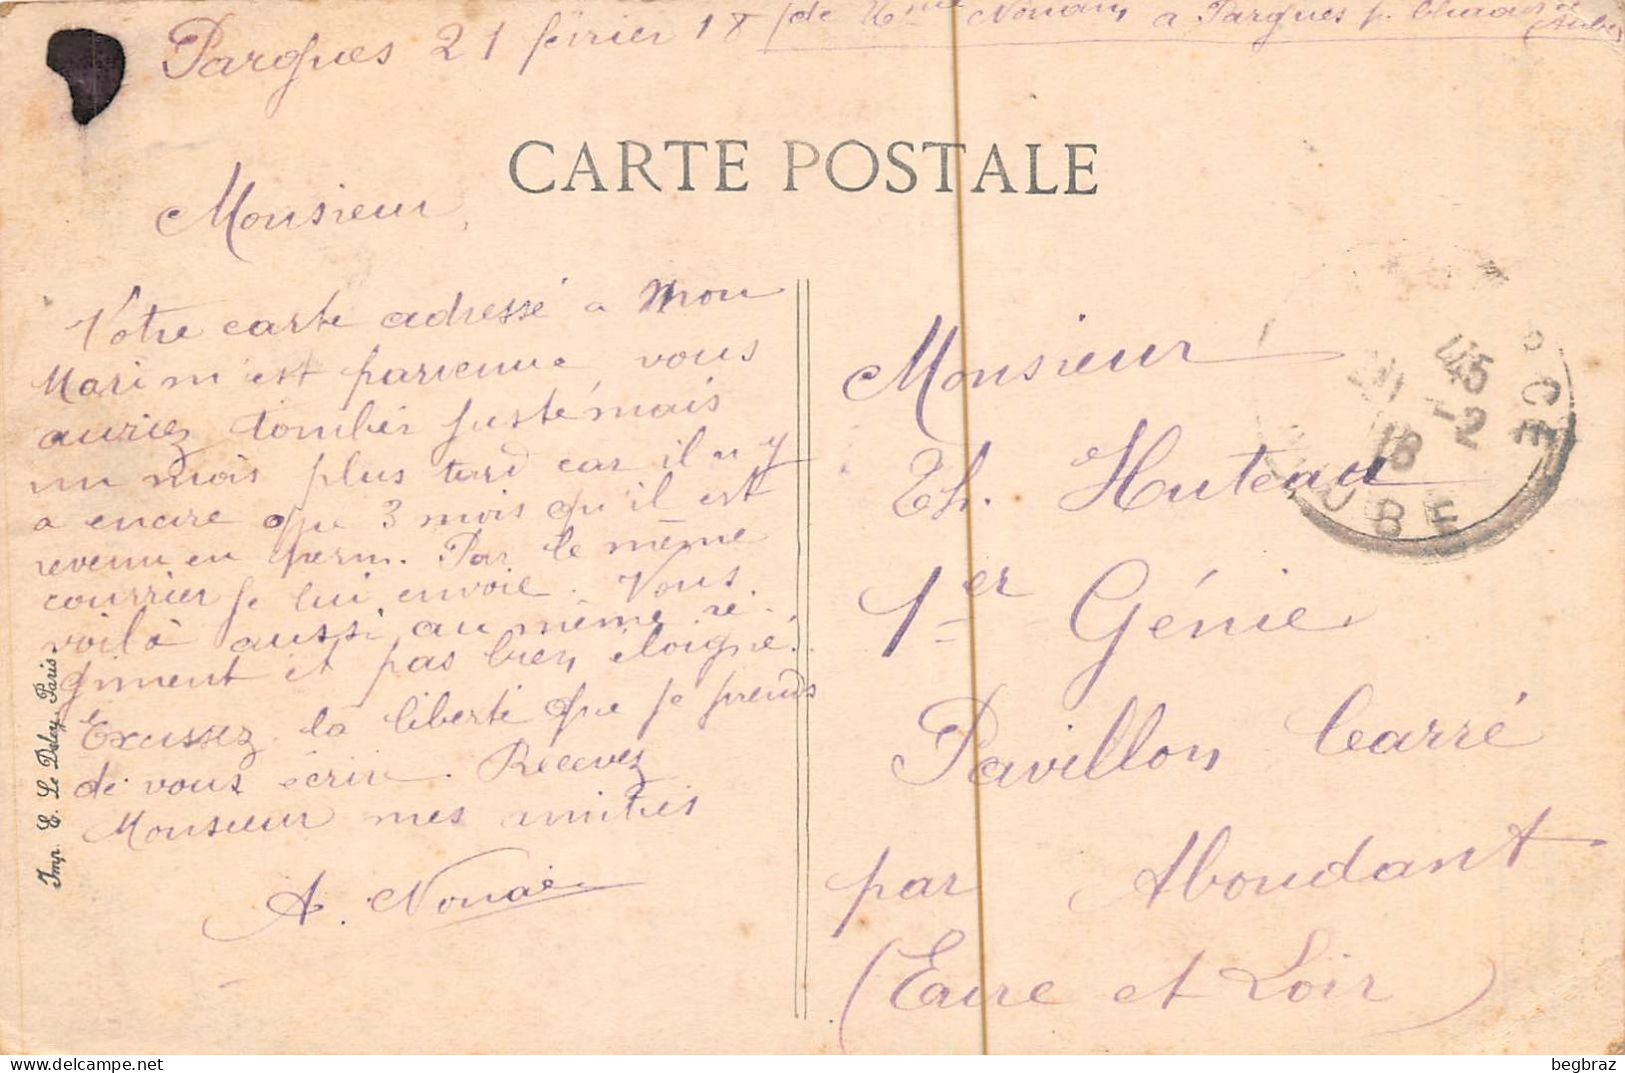 Pargues 21 février 18 / de Mme Nonain a Pargues p. Chaource
(Aube)
CARTE POSTALE
Monsieur,
Votre carte adressé a mon
Mari m'est parvenue vous
auriez tomber juste mais
un mois plus tard car il n y
a encore que 3 mois qu'il est
revenu en perm. Par le même
courrier je lui envoie. Vous
voilà aussi au même ré-
giment et pas bien eloigné.
Excusez la liberté que je prends
de vous écrir. Recevez
Monsieur mes amitiés
A. Nonain
Monsieur
Th. Huteau
1er Génie
Pavillon Carré
par Abondant
(Eure et Loir)
45
-2
18
CE
AUBE
Imp. E. Le Deley, Paris
begbraz